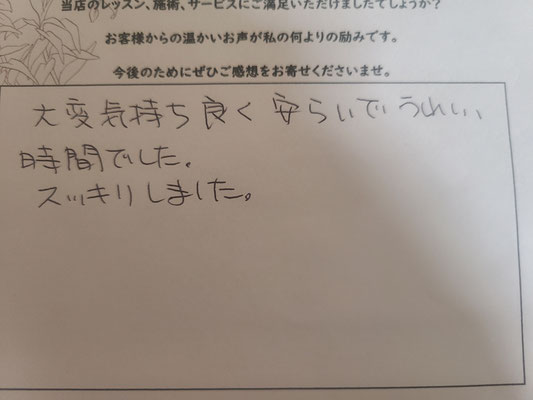 当店のレッスン、施術、サービスにご満足いただけましたでしょうか？
お客様からの温かいお声が私の何よりの励みです。
今後のためにぜひご感想をお寄せくださいませ。
大変気持ち良く安らいでうれしい
時間でした。
スッキリしました。